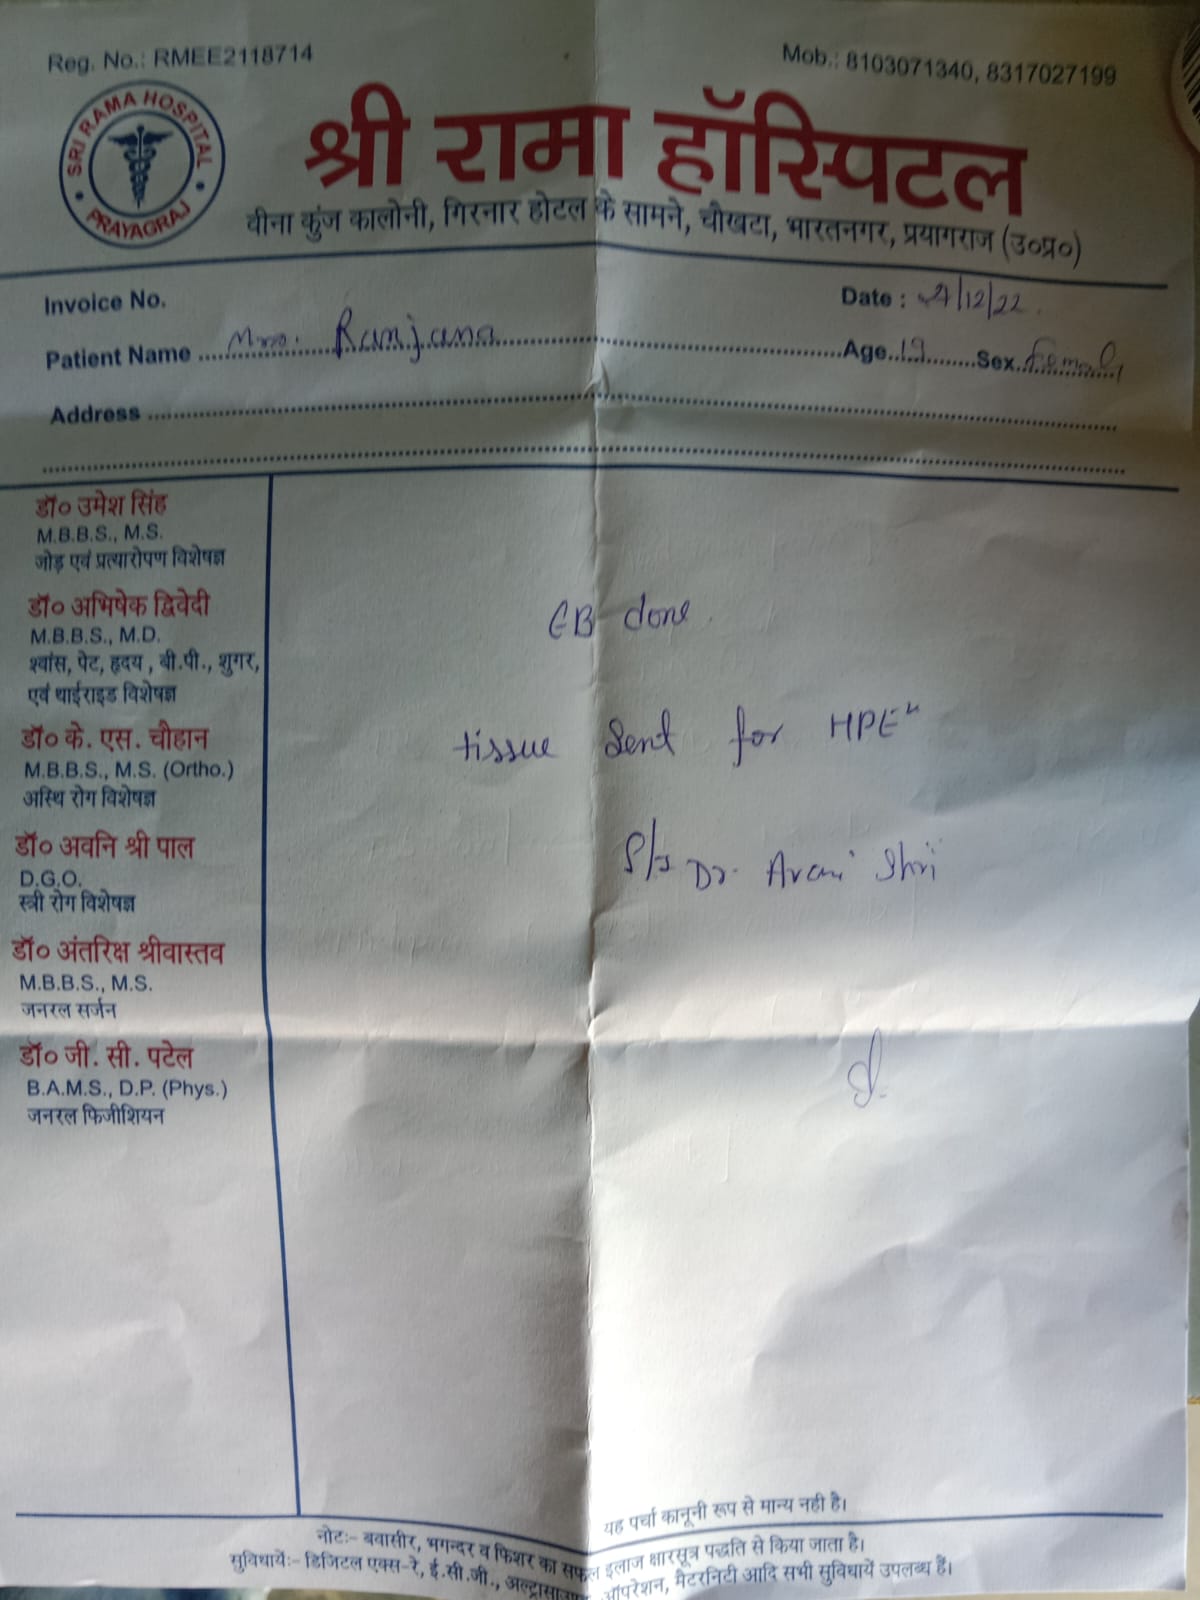 Reg. No.: RMEE2118714
Mob.: 8103071340, 8317027199
SRI RAMA HOSPITAL
PRAYAGRAJ
श्री रामा हॉस्पिटल
वीना कुंज कालोनी, गिरनार होटल के सामने, चौखटा, भारतनगर, प्रयागराज (उ०प्र०)
Invoice No.
Date : /12/22
Patient Name Mrs. Ranjana Age 19 Sex Female
Address
डॉ० उमेश सिंह
M.B.B.S., M.S.
जोड़ एवं प्रत्यारोपण विशेषज्ञ
डॉ० अभिषेक द्विवेदी
M.B.B.S., M.D.
श्वांस, पेट, हृदय , बी.पी., शुगर,
एवं थाईराइड विशेषज्ञ
डॉ० के. एस. चौहान
M.B.B.S., M.S. (Ortho.)
अस्थि रोग विशेषज्ञ
डॉ० अवनि श्री पाल
D.G.O.
स्त्री रोग विशेषज्ञ
डॉ० अंतरिक्ष श्रीवास्तव
M.B.B.S., M.S.
जनरल सर्जन
डॉ० जी. सी. पटेल
B.A.M.S., D.P. (Phys.)
जनरल फिजीशियन
EB done
tissue sent for HPE
Dr. Avani Shri
यह पर्चा कानूनी रूप से मान्य नही है।
नोटः- बवासीर, भगन्दर व फिशर का सफल इलाज क्षारसूत्र पद्धति से किया जाता है।
सुविधायेंः- डिजिटल एक्स-रे, ई.सी.जी., ऑपरेशन, मैटरनिटी आदि सभी सुविधायें उपलब्ध हैं।